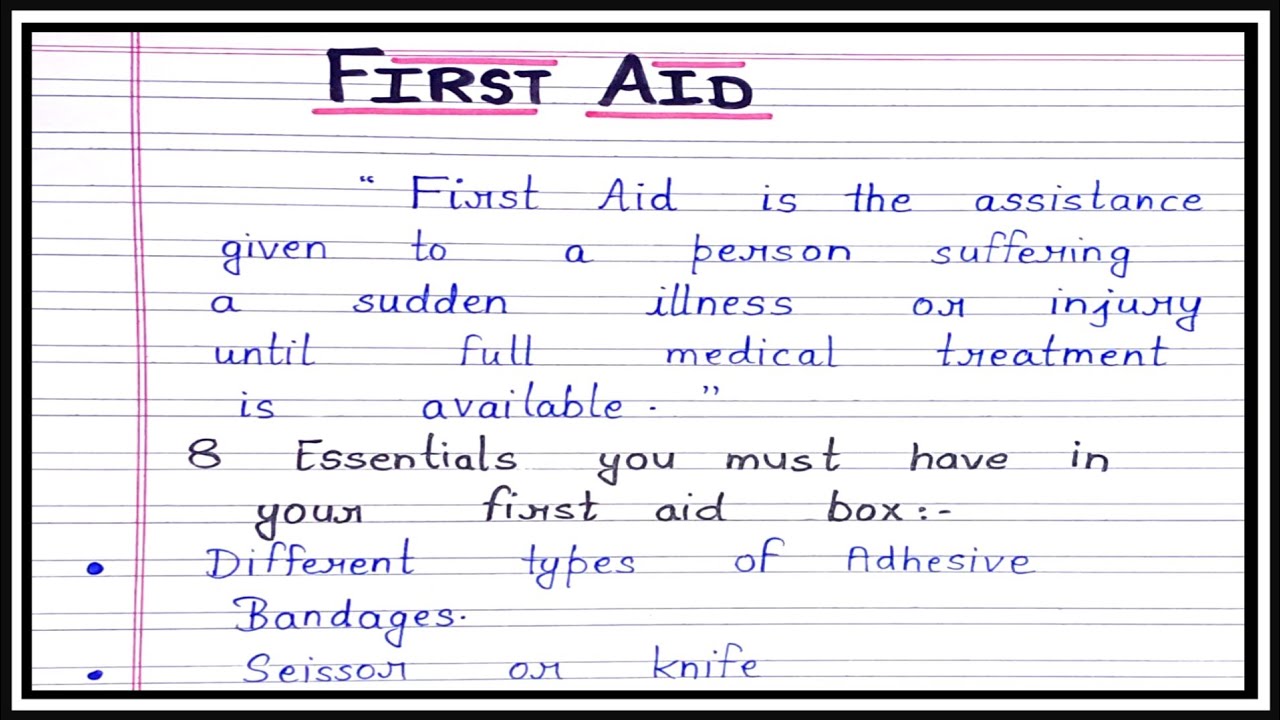 FIRST AID
“ First Aid is the assistance
given to a person suffering
a sudden illness or injury
until full medical treatment
is available. ”
8 Essentials you must have in
your first aid box:-
• Different types of Adhesive
Bandages.
• Seissor or knife